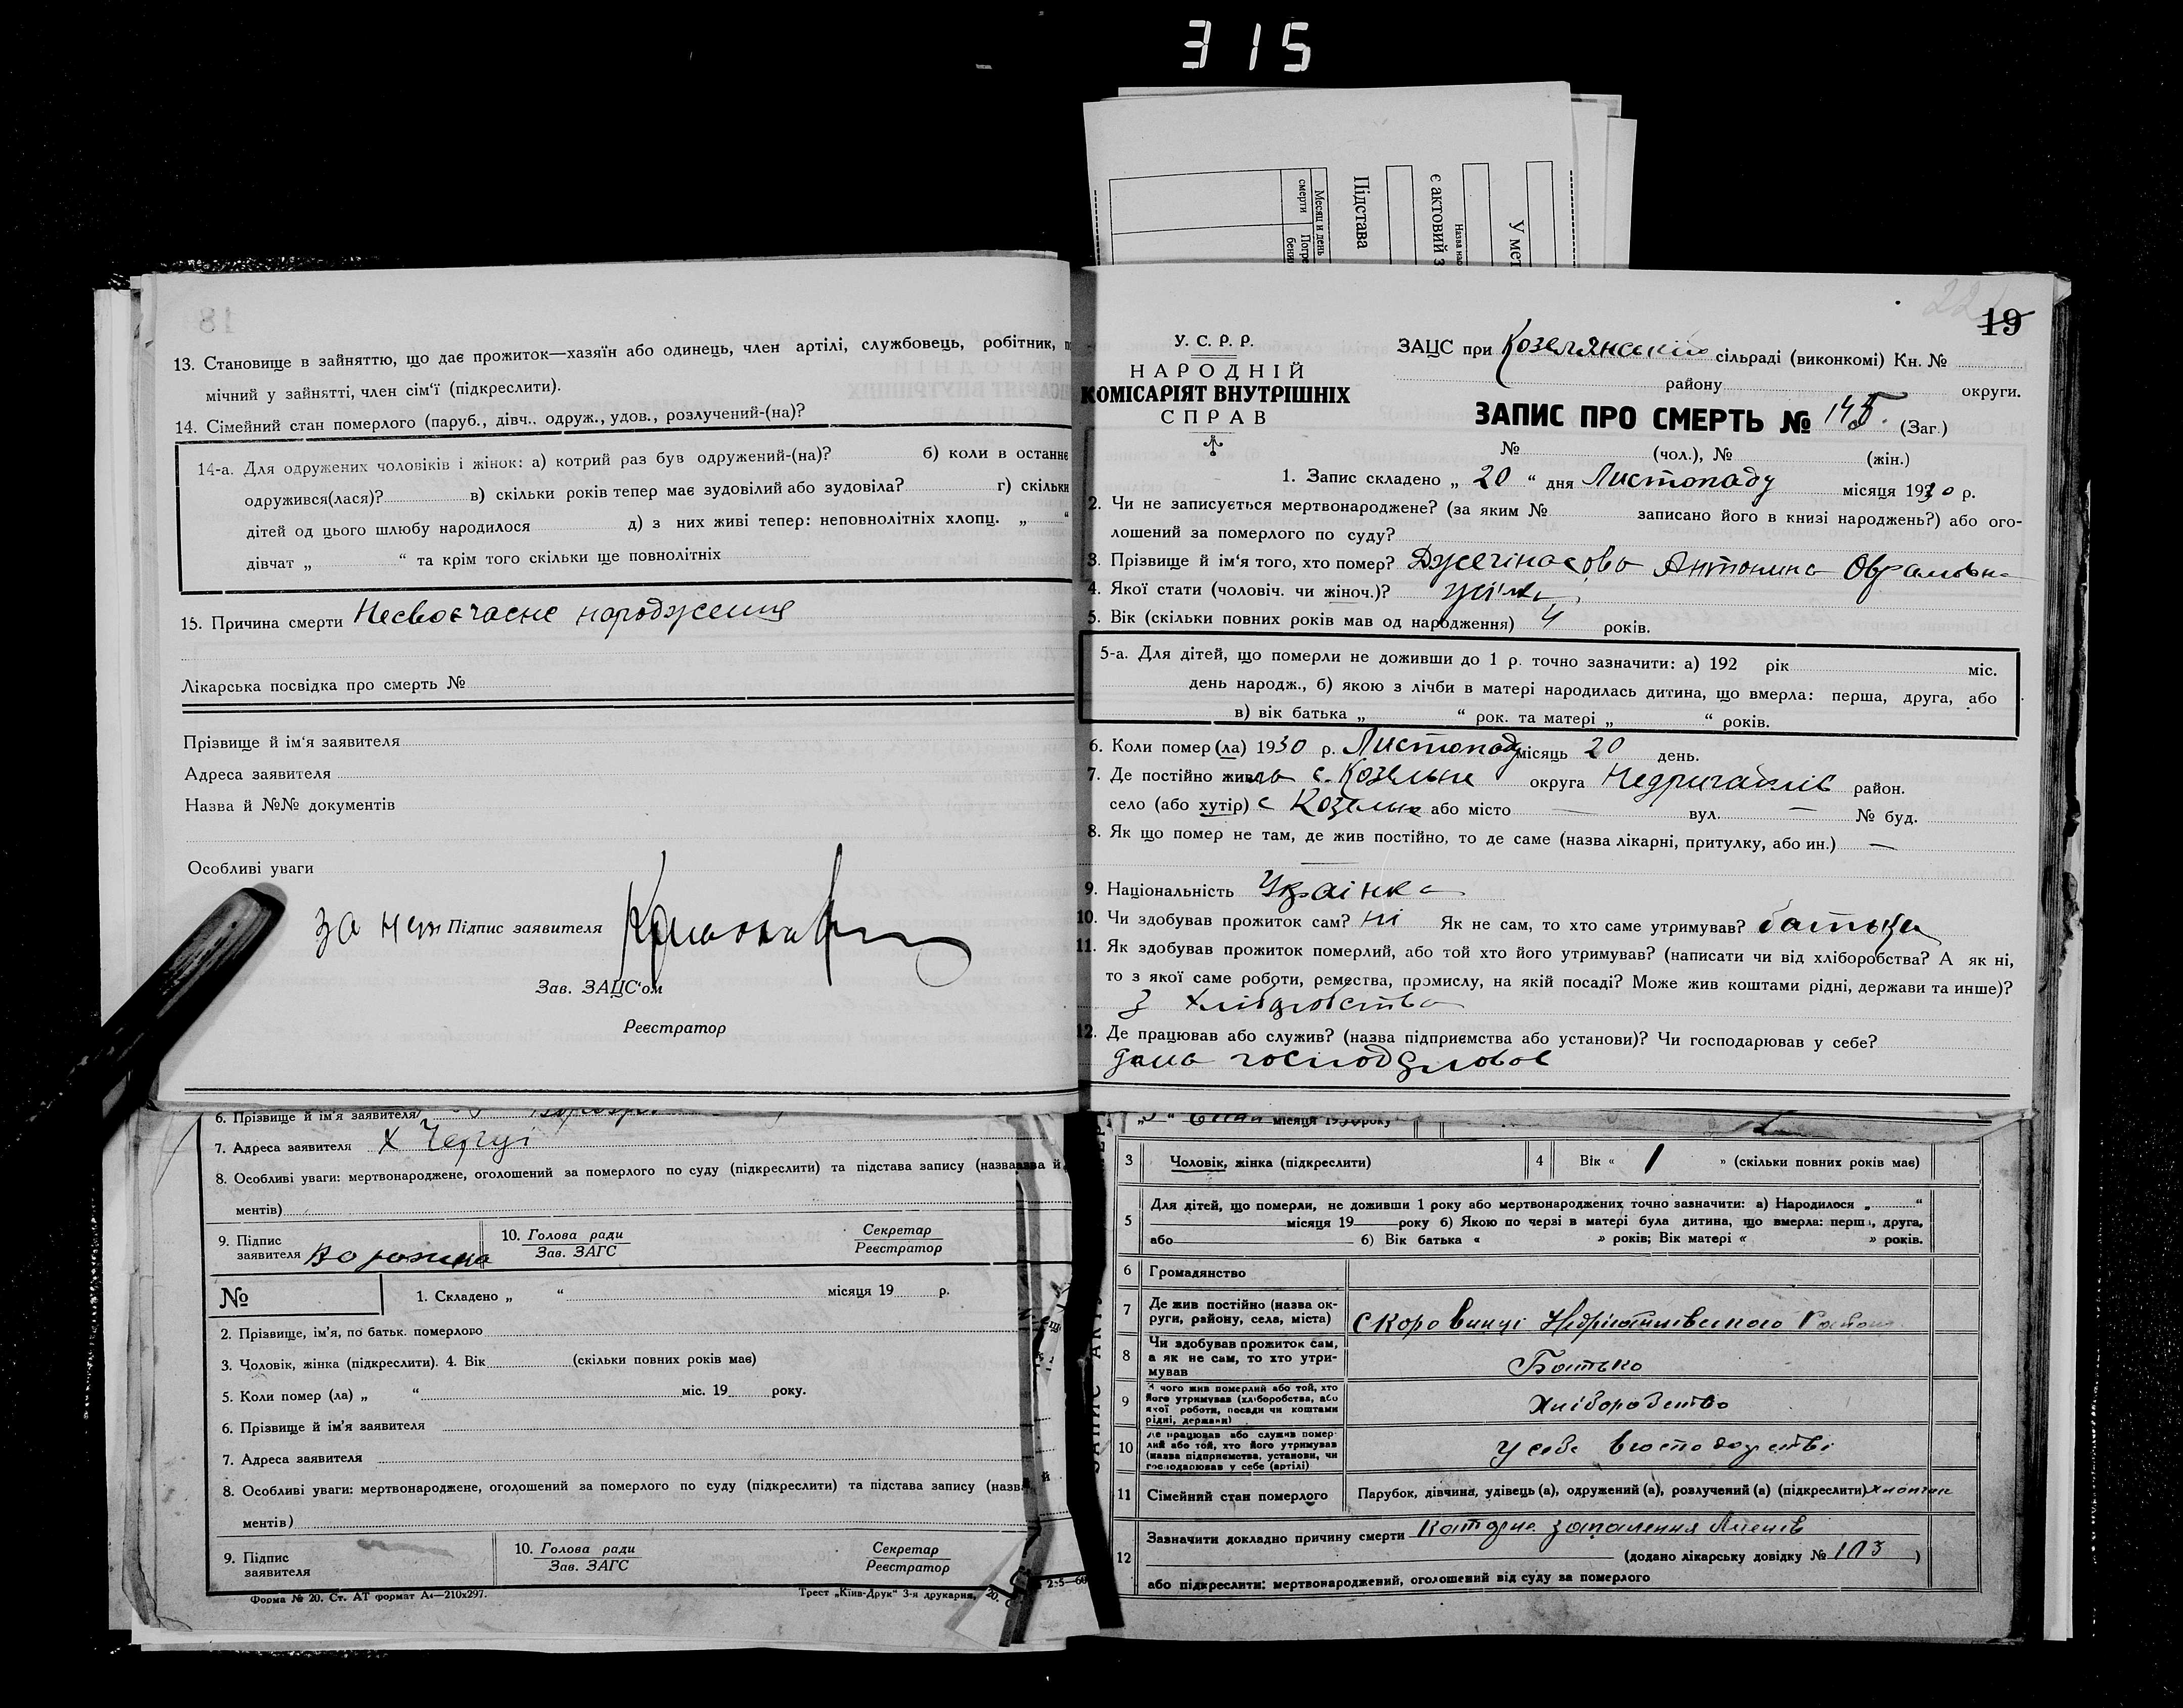 315
Місяц и день
смерти
Підстава
є актовий з
У мет
13. Становище в зайняттю, що дає прожиток—хазяїн або одинець, член артілі, службовець, робітник,
мічний у зайнятті, член сім'ї (підкреслити).
14. Сімейний стан померлого (паруб., дівч., одруж., удов., розлучений-(на)?
14-а. Для одружених чоловіків і жінок: а) котрий раз був одружений-(на)? б) коли в останнє
одружився(лася)? в) скільки років тепер має зудовілий або зудовіла? г) скільки
дітей од цього шлюбу народилося д) з них живі тепер: неповнолітніх хлопц. „ “
дівчат „ “ та крім того скільки ще повнолітніх
15. Причина смерти Несвоєчасне народження
Лікарська посвідка про смерть №
Прізвище й ім'я заявителя
Адреса заявителя
Назва й №№ документів
Особливі уваги
за неп Підпис заявителя
Зав. ЗАЦС'ом
Реєстратор
6. Прізвище й ім'я заявителя
7. Адреса заявителя х
8. Особливі уваги: мертвонароджене, оголошений за померлого по суду (підкреслити) та підстава запису (назва й
ментів)
9. Підпис заявителя
10. Голова ради
Зав. ЗАГС
Секретар
Реєстратор
№ 1. Складено „ “ місяця 19 р.
2. Прізвище, ім'я, по батьк. померлого
3. Чоловік, жінка (підкреслити). 4. Вік (скільки повних років має)
5. Коли помер (ла) „ “ міс. 19 року.
6. Прізвище й ім'я заявителя
7. Адреса заявителя
8. Особливі уваги: мертвонароджене, оголошений за померлого по суду (підкреслити) та підстава запису (назв
ментів)
9. Підпис заявителя
10. Голова ради
Зав. ЗАГС
Секретар
Реєстратор
Форма № 20. Ст. АТ формат А4—210х297.
Трест „Київ-Друк“ 3-я друкарня,
19
У. С. Р. Р.
НАРОДНІЙ
КОМІСАРІЯТ ВНУТРІШНІХ
СПРАВ
ЗАЦС при Козелянській сільраді (виконкомі) Кн. №
району округи.
ЗАПИС ПРО СМЕРТЬ № 145. (Заг.)
№ (чол.), № (жін.)
1. Запис складено „ 20 “ дня Листопаду місяця 1930 р.
2. Чи не записується мертвонароджене? (за яким № записано його в книзі народжень?) або ого-
лошений за померлого по суду?
3. Прізвище й ім'я того, хто помер? Антонина
4. Якої стати (чоловіч. чи жіноч.)? жін.
5. Вік (скільки повних років мав од народження) 4 років.
5-а. Для дітей, що померли не доживши до 1 р. точно зазначити: а) 192 рік міс.
день народж., б) якою з лічби в матері народилась дитина, що вмерла: перша, друга, або
в) вік батька „ “ рок. та матері „ “ років.
6. Коли помер (ла) 1930 р. Листопаду місяць 20 день.
7. Де постійно жила с. Козельне округа Недригайлів район.
село (або хутір) с Козельне або місто — вул. — № буд.
8. Як що помер не там, де жив постійно, то де саме (назва лікарні, притулку, або ин.) —
9. Національність Українка
10. Чи здобував прожиток сам? ні Як не сам, то хто саме утримував? батьки
11. Як здобував прожиток померлий, або той хто його утримував? (написати чи від хліборобства? А як ні,
то з якої саме роботи, ремества, промислу, на якій посаді? Може жив коштами рідні, держави та инше)?
З хліборобства
12. Де працював або служив? (назва підприємства або установи)? Чи господарював у себе?
дома
місяця 1930 року
3 Чоловік, жінка (підкреслити) 4 Вік « 1 » (скільки повних років має)
5 Для дітей, що померли, не доживши 1 року або мертвонароджених точно зазначити: а) Народилося „ “
місяця 19 року б) Якою по черзі в матері була дитина, що вмерла: перша, друга,
або б) Вік батька « » років; Вік матері « » років.
6 Громадянство
7 Де жив постійно (назва ок-
руги, району, села, міста)
8 Чи здобував прожиток сам,
а як не сам, то хто утри-
мував Батько
9 З чого жив померлий або той, хто
його утримував (хліборобства, або
якої роботи, посади чи коштами
рідні, держави) Хліборобство
10 Де працював або служив помер-
лий або той, хто його утримував
(назва підприємства, установи, чи
господарював у себе (артілі) у себе в господарстві
11 Сімейний стан померлого Парубок, дівчина, удівець (а), одружений (а), розлучений (а) (підкреслити)
12 Зазначити докладно причину смерти запалення
(додано лікарську довідку № 103 )
або підкреслити: мертвонароджений, оголошений від суду за померлого